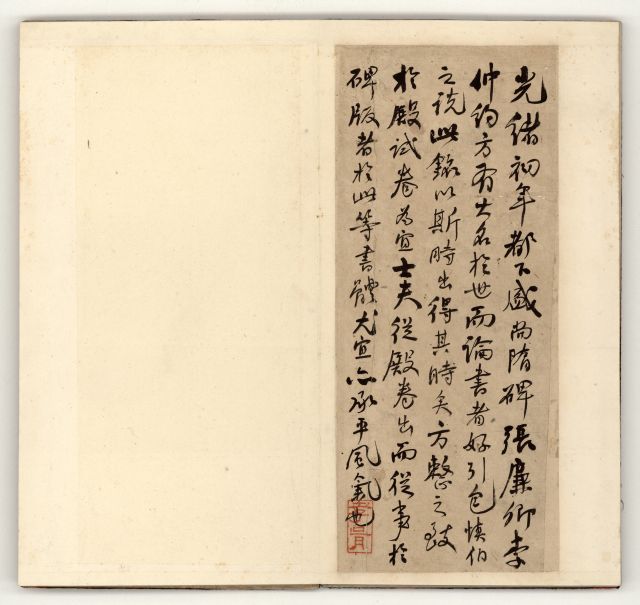 光緒初年都下盛尚隋碑張廉卿李
仲約方有大名於世而論書者好引包慎伯
之說此銘以斯時出得其時矣方整之致
於殿試卷為宜士夫從殿卷出而從事於
碑版者於此等書體尤宜亦承平風氣也